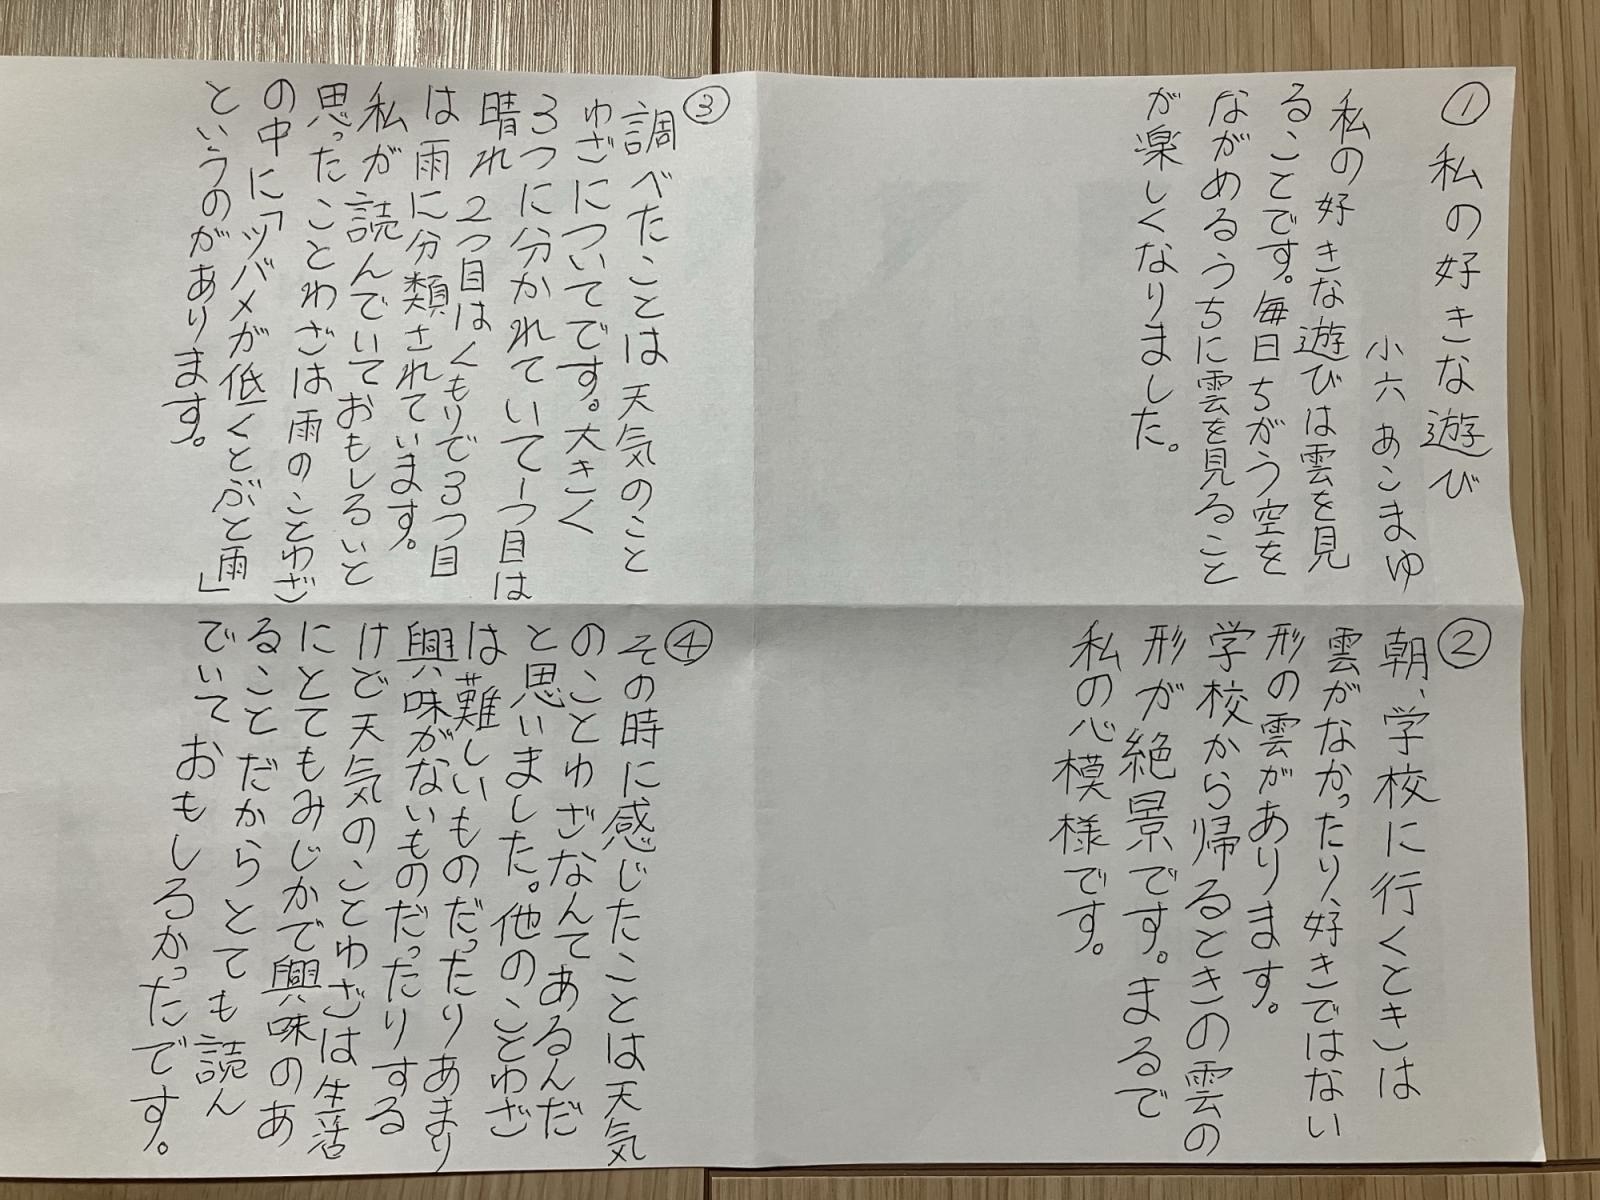 ① 私の好きな遊び
小六 あこまゆ
私の好きな遊びは雲を見
ることです。毎日ちがう空を
ながめるうちに雲を見ること
が楽しくなりました。
②
朝、学校に行くときは
雲がなかったり、好きではない
形の雲があります。
学校から帰るときの雲の
形が絶景です。まるで
私の心模様です。
③
調べたことは天気のこと
わざについてです。大きく
3つに分かれていて1つ目は
晴れ 2つ目はくもりで3つ目
は雨に分類されています。
私が読んでいておもしろいと
思ったことわざは雨のことわざ
の中に「ツバメが低くとぶと雨」
というのがあります。
④
その時に感じたことは天気
のことわざなんてあるんだ
と思いました。他のことわざ
は難しいものだったりあまり
興味がないものだったりする
けど天気のことわざは生活
にとてもみじかで興味のあ
ることだからとても読ん
でいておもしろかったです。